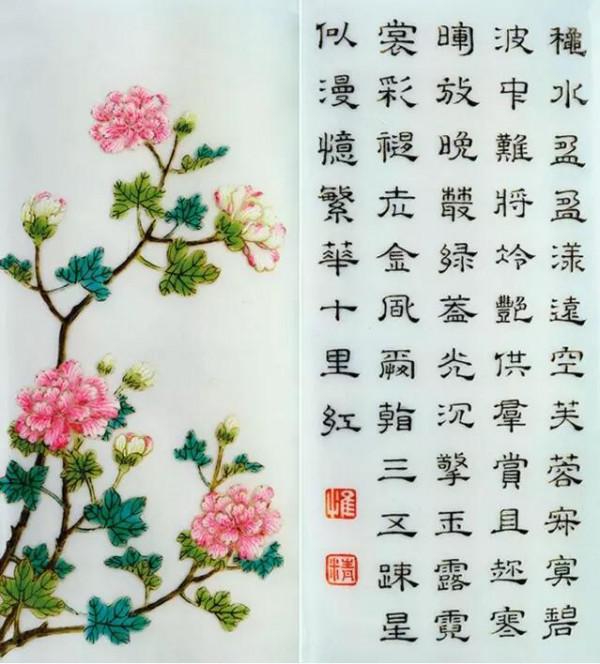 穐水盈盈漾遠空芙蓉寂寞碧
波中難將冷艷供羣賞且趂寒
暉放晚叢緑蓋光沉擎玉露霓
裳彩褪怯金風爾看三五踈星
似漫憶繁華十里紅
惟
精